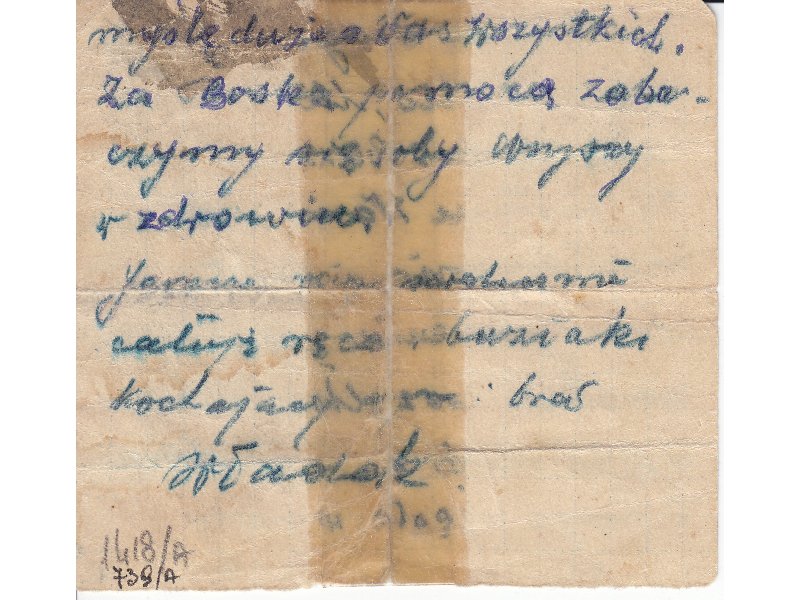 myślę dużo o Was wszystkich.
Za Boską pomocą zoba-
czymy się oby wszyscy
w zdrowiu
całuję ręce i buziaki
kochający Was brat
Władek.
1418/A
739/A